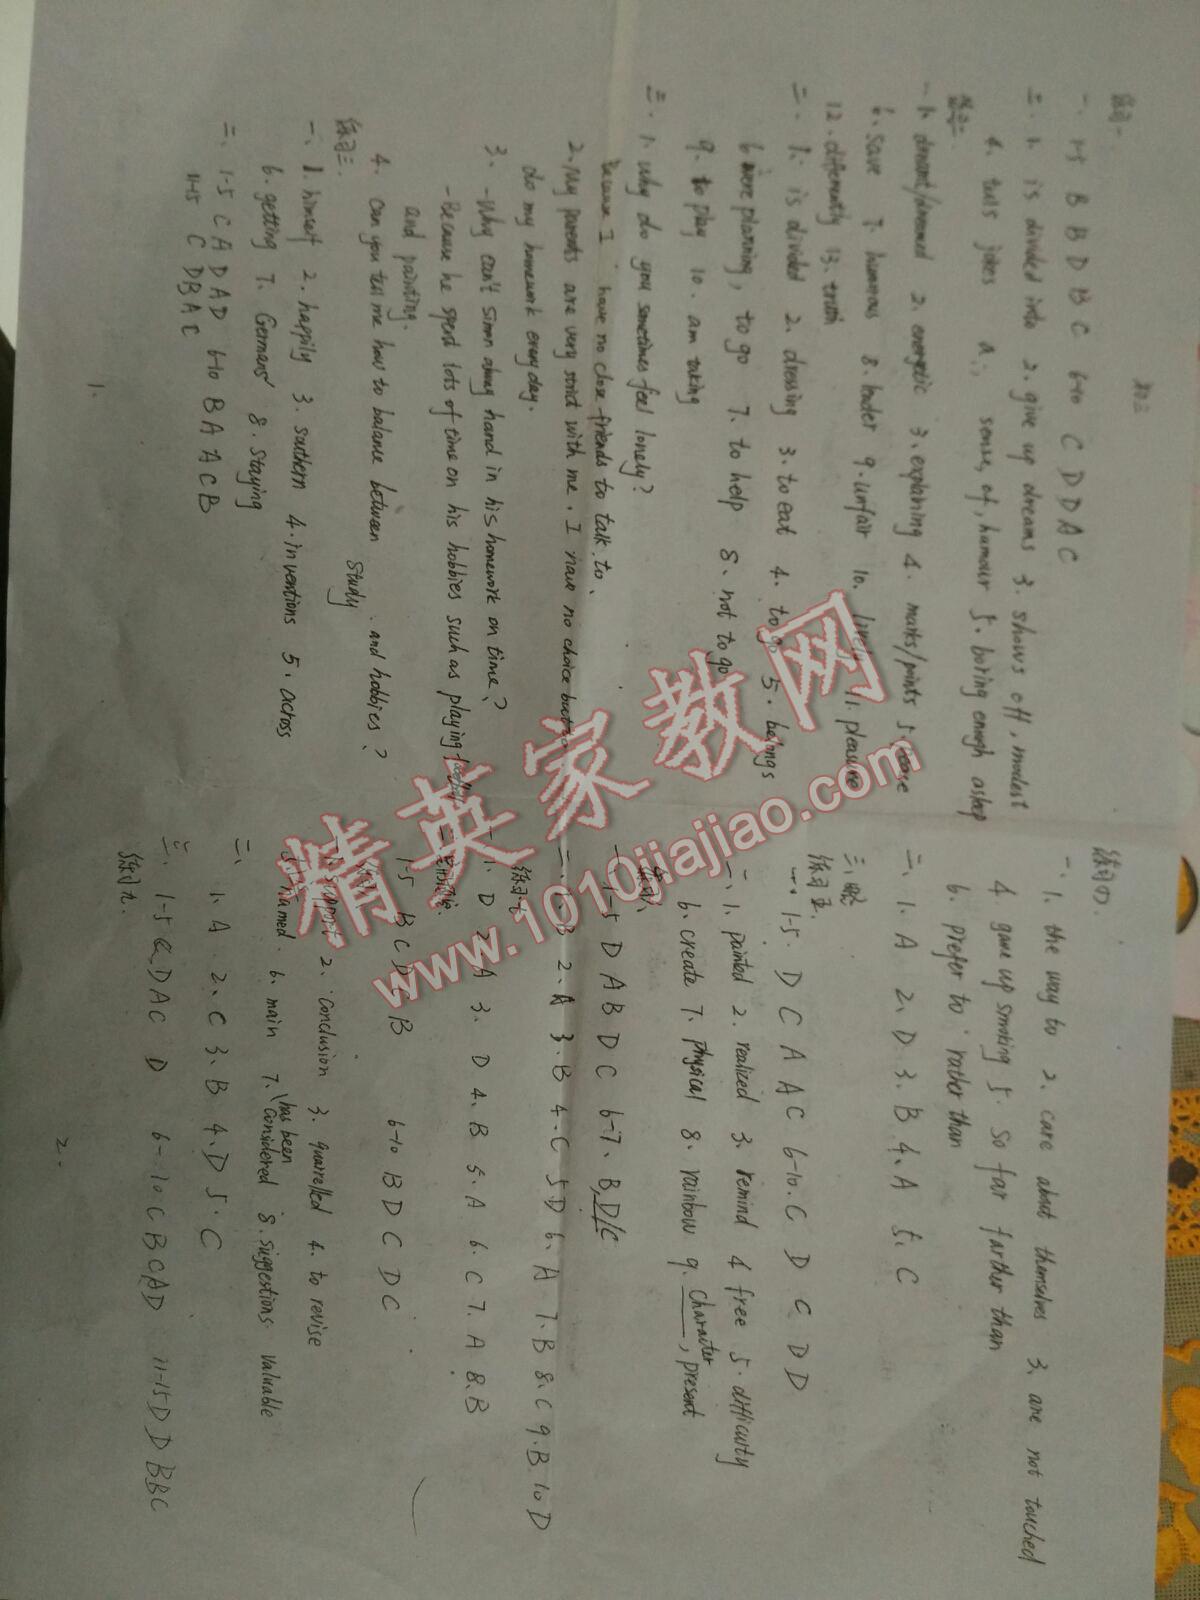 初三
练习一
一. 1-5 B B D B C 6-10 C D D A C
二. 1. is divided into 2. give up dreams 3. shows off, modest
4. tells jokes a, sense, of, humour 5. boring enough asleep
练习二
一. 1. 2. energetic 3. explaining 4. marks/points 5.
6. save 7. humorous 8. 9. unfair 10. lively 11. pleasure
12. differently 13. truth
二. 1. is divided 2. dressing 3. to eat 4. to go 5. belongs
6 were planning, to go 7. to help 8. not to go
9. to play 10. am taking
三. 1. why do you sometimes feel lonely?
Because I have no close friends to talk to.
2. My parents are very strict with me. I have no choice but to
do my homework every day.
3. - Why can't Simon hand in his homework on time?
- Because he spend lots of time on his hobbies such as playing football
and painting.
4. Can you tell me how to balance between study and hobbies?
练习三.
一. 1. himself 2. happily 3. southern 4. inventions 5. across
6. getting 7. Germans' 8. staying
二. 1-5 C A D A D 6-10 B A A C B
11-15 C D B A C
1.
练习四.
一. 1. the way to 2. care about themselves 3. are not touched
4. gave up smoking 5. so far farther than
6. prefer to rather than
二. 1. A 2. D 3. B 4. A 5. C
三. 略
练习五.
一. 1-5. D C A A C 6-10. C D C D D
二. 1. painted 2. realized 3. remind 4 free 5. difficulty
6. create 7. physical 8. rainbow 9. character, present
练习六
一. 1-5 D A B D C 6-7. B, D/C
二. 1. B 2. A 3. B 4. C 5 D 6. A 7. B 8. C 9. B 10 D
练习七
一. 1. D 2. A 3. D 4. B 5. A 6. C 7. A 8. B
1-5 B C D C B 6-10 B D C D C
1. support 2. conclusion 3. quarrelled 4. to revise
6. main 7. has been considered 8. suggestions valuable
二. 1. A 2. C 3. B 4. D 5. C
练习九.
1-5 D A C D 6-10 C B C A D 11-15 D D B B C
2.
精英家教网
www.1010jiajiao.com